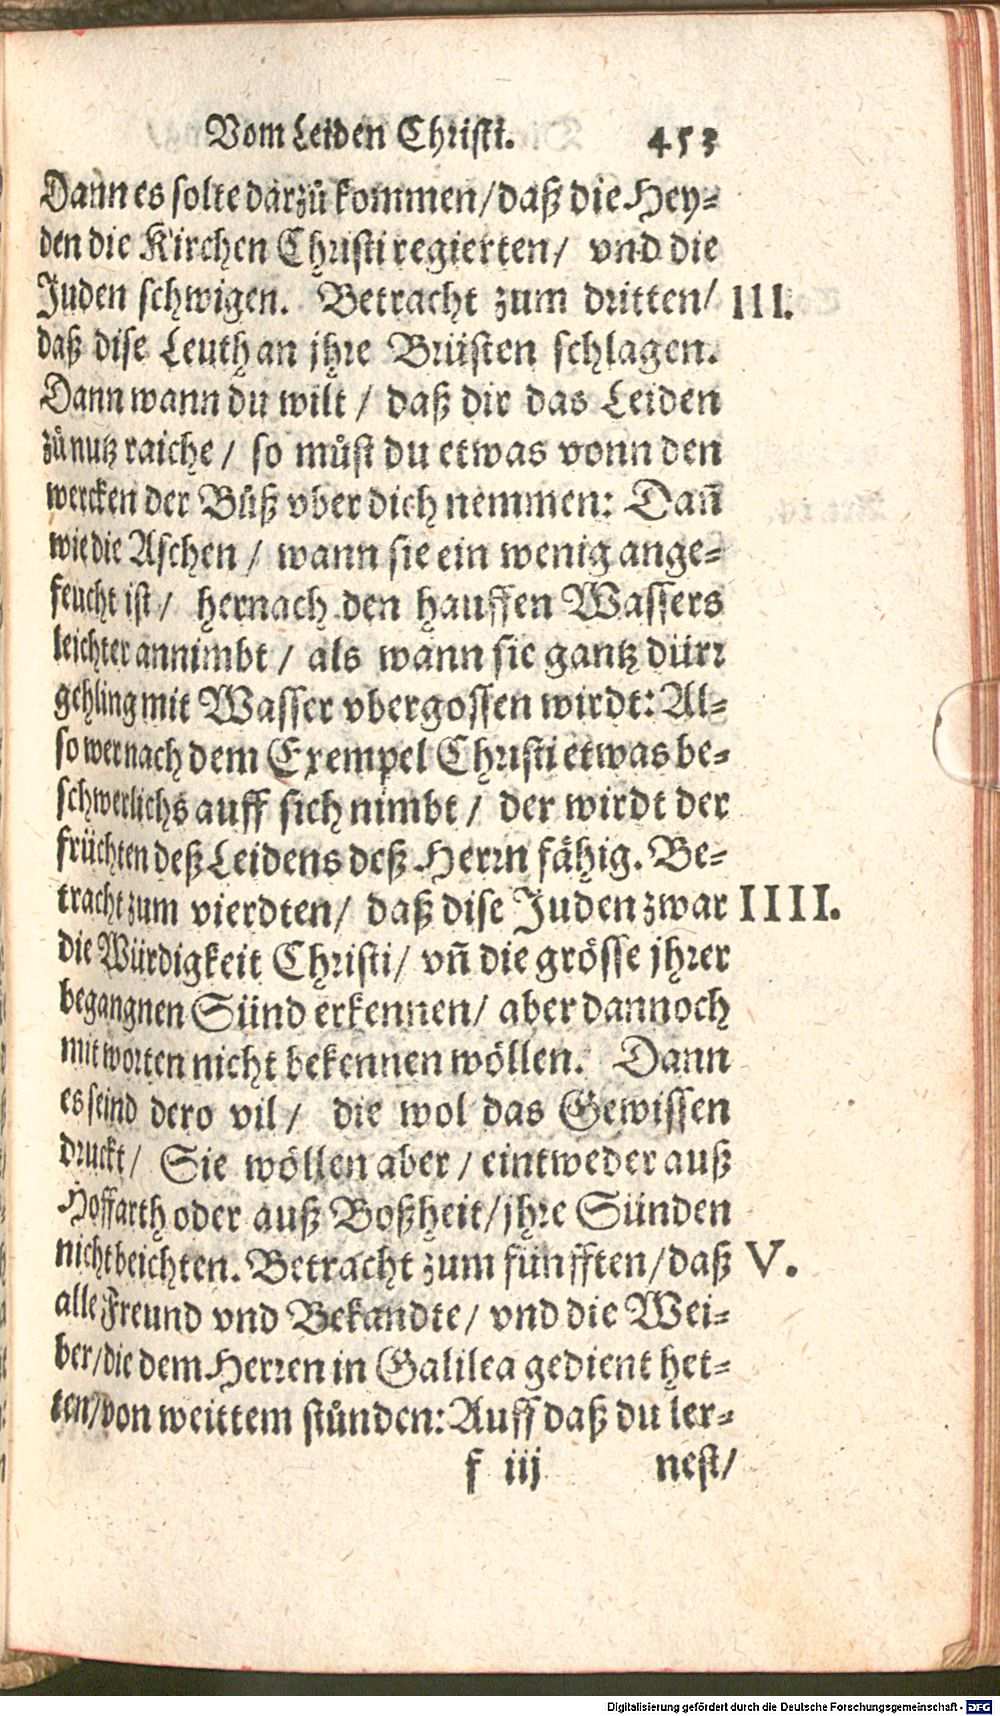 Vom Leiden Christi. 453
Dann es solte darzů kommen/daß die Hey-
den die Kirchen Christi regierten/ vnd die
Juden schwigen. Betracht zum dritten/ III.
daß dise Leuth an jhre Brüsten schlagen.
Dann wann du wilt / daß dir das Leiden
zů nutz raiche / so můst du etwas vonn den
wercken der Bůß vber dich nemmen: Dañ
wie die Aschen / wann sie ein wenig ange-
feucht ist / hernach den hauffen Wassers
leichter annimbt / als wann sie gantz dürr
gehling mit Wasser vbergossen wirdt: Al-
so wer nach dem Exempel Christi etwas be-
schwerlichs auff sich nimbt / der wirdt der
früchten deß Leidens deß Herrn fähig. Be-
tracht zum vierdten/ daß dise Juden zwar IIII.
die Würdigkeit Christi/ vñ die grösse jhrer
begangnen Sünd erkennen/ aber dannoch
mit worten nicht bekennen wöllen. Dann
es seind dero vil / die wol das Gewissen
druckt/ Sie wöllen aber / eintweder auß
Hoffarth oder auß Boßheit/jhre Sünden
nicht beichten. Betracht zum fünfften/daß V.
alle Freund vnd Bekandte/ vnd die Wei-
ber/die dem Herren in Galilea gedient het-
ten/von weittem stůnden: Auff daß du ler-
f iij nest/
Digitalisierung gefördert durch die Deutsche Forschungsgemeinschaft - DFG